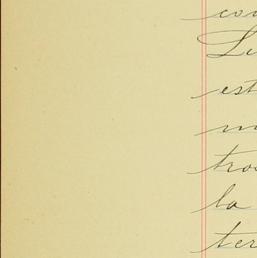 con
Li
est
m
tros
la
ter